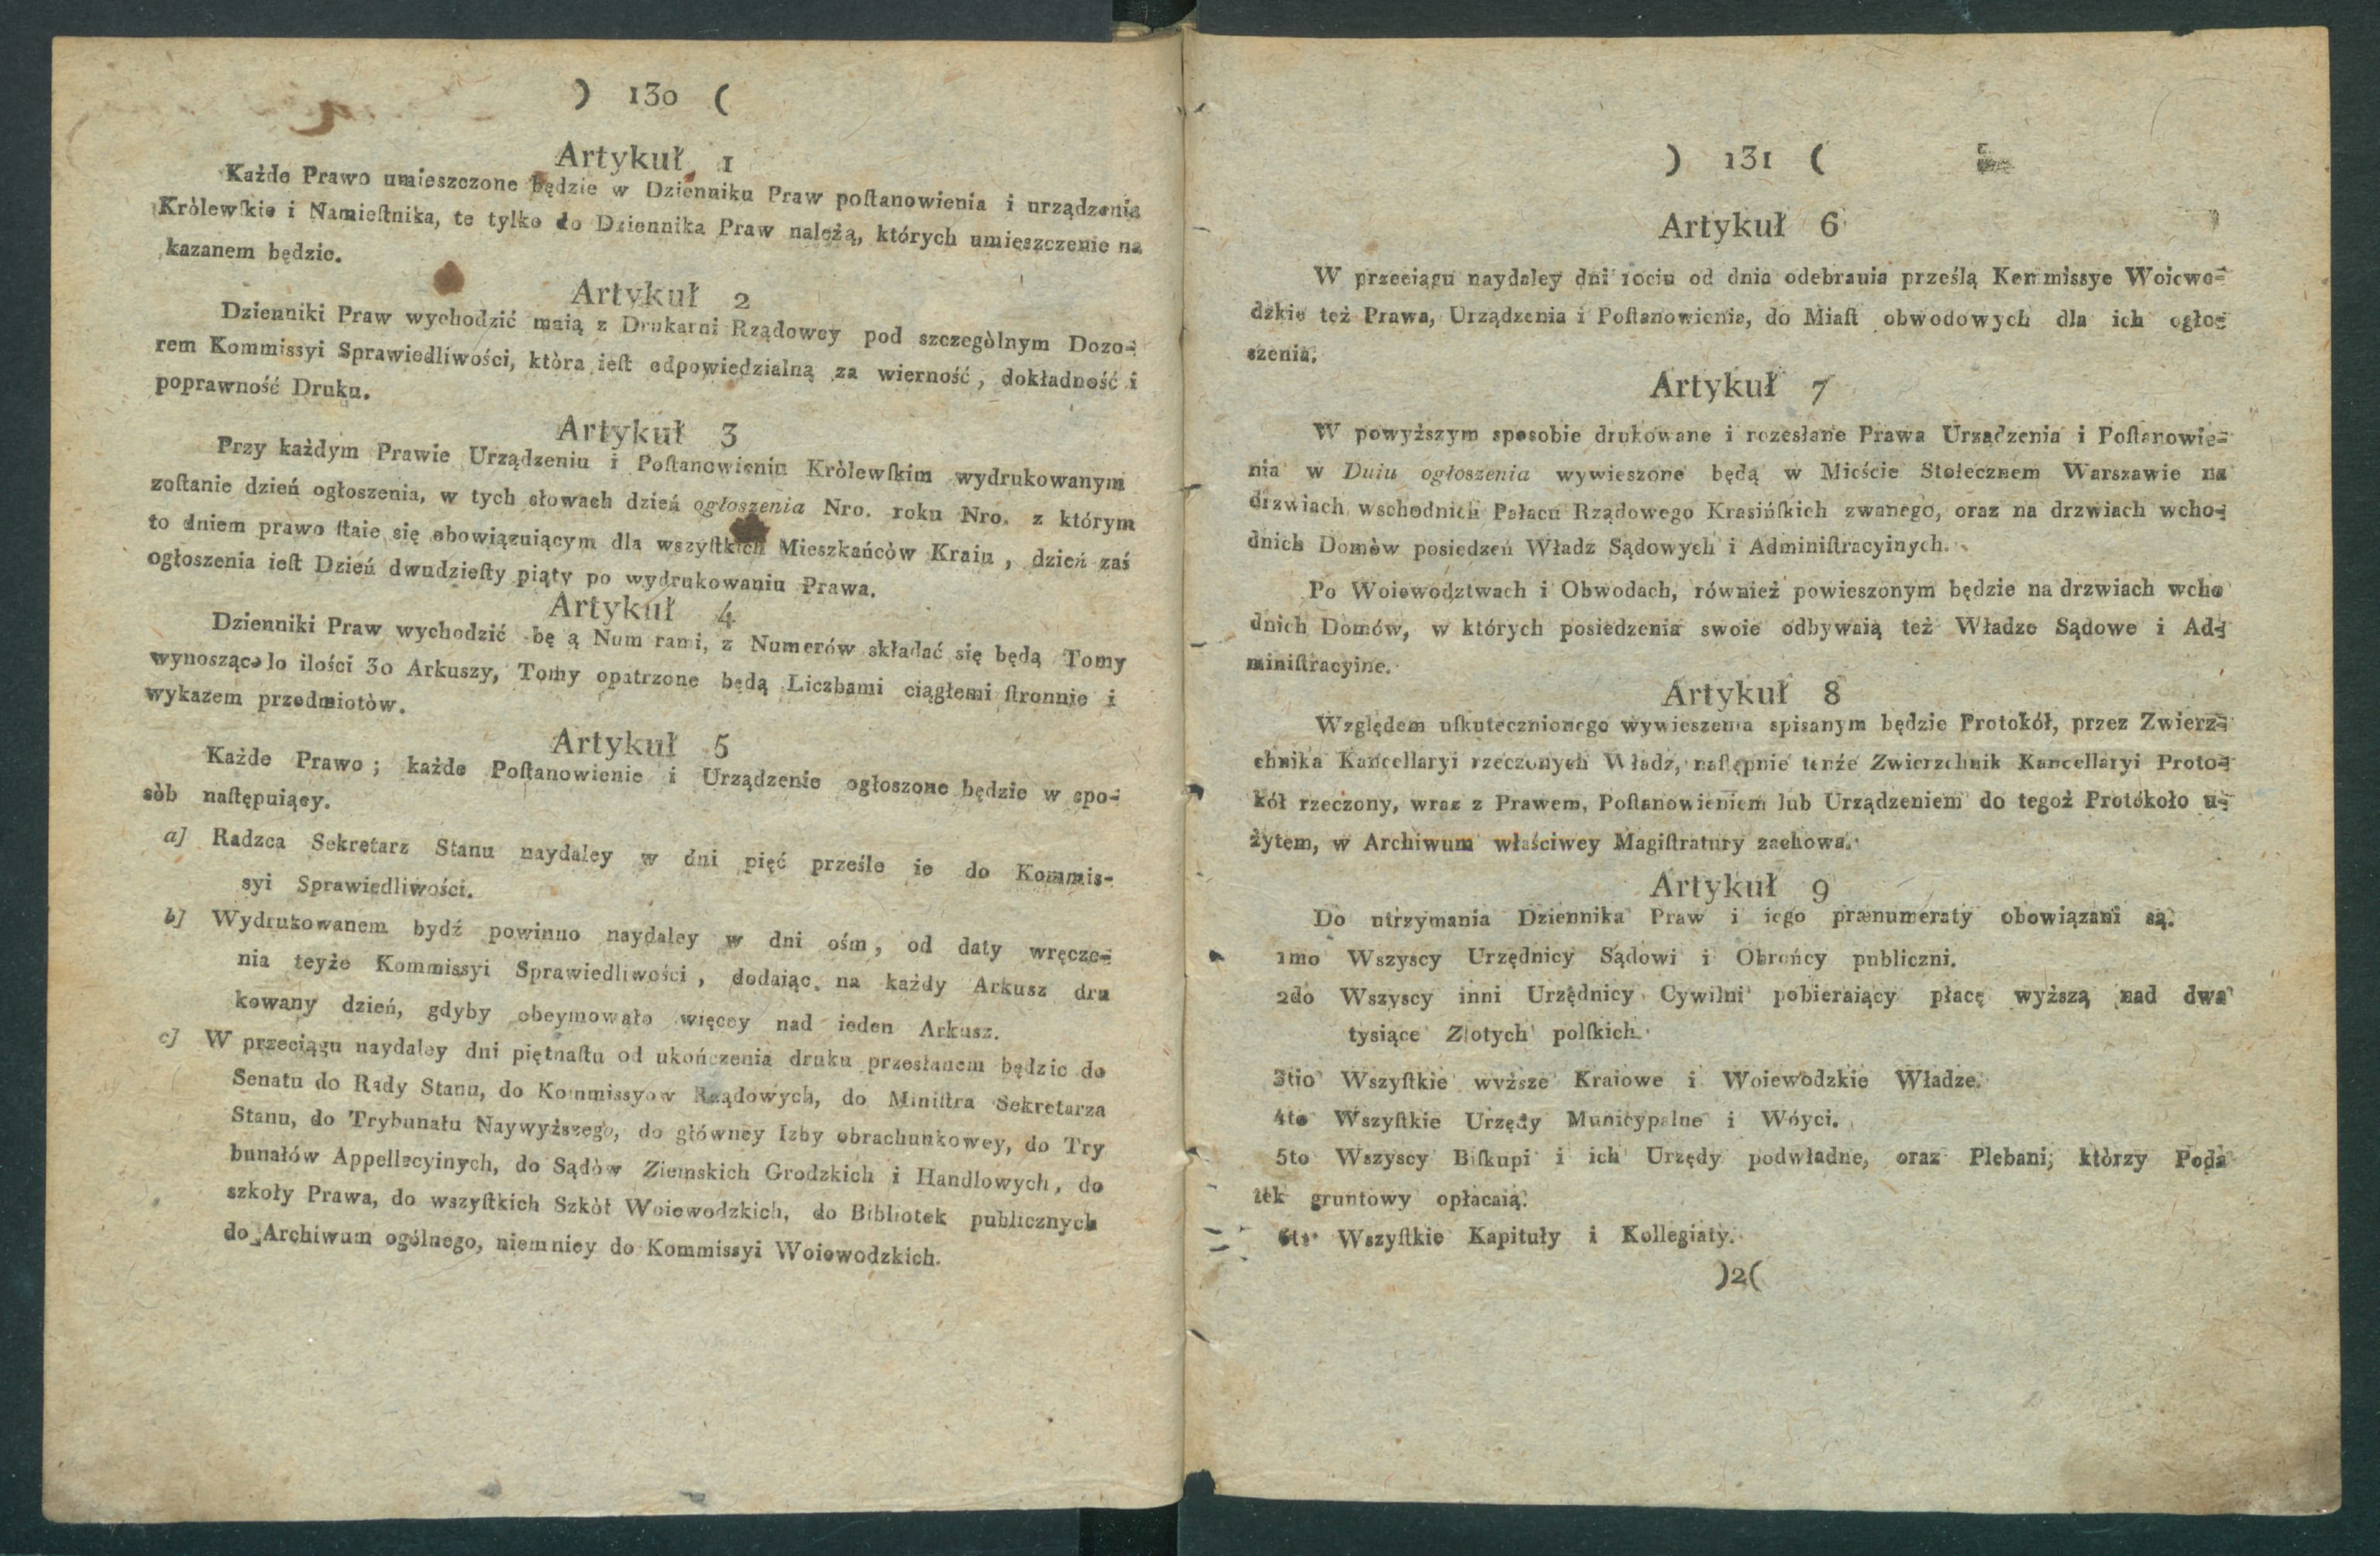 ) 130 (
Artykuł 1
Każde Prawo umieszczone będzie w Dzienniku Praw poſtanowienia i urządzenia
Królewſkie i Namieſtnika, te tylko do Dziennika Praw należą, których umieszczenie na
kazanem będzie.
Artykuł 2
Dzienniki Praw wychodzić maią z Drukarni Rządowey pod szczegòlnym Dozo=
rem Kommissyi Sprawiedliwości, ktòra ieſt odpowiedzialną za wierność, dokładność i
poprawność Druku.
Artykuł 3
Przy każdym Prawie Urządzeniu i Poſtanowieniu Kròlewſkim wydrukowanym
zoſtanie dzień ogłoszenia, w tych słowach dzień ogłoszenia Nro. roku Nro. z którym
to dniem prawo ſtaie się obowiązuiącym dla wszyſtkich Mieszkańcòw Kraiu, dzień zaś
ogłoszenia ieſt Dzień dwudzieſty piąty po wydrukowaniu Prawa.
Artykuł 4
Dzienniki Praw wychodzić bę ą Num rami, z Numerów składać się będą Tomy
wynoszące lo ilości 30 Arkuszy, Tomy opatrzone będą Liczbami ciągłemi ſtronnie i
wykazem przedmiotòw.
Artykuł 5
Każde Prawo; każde Poſtanowienie i Urządzenie ogłoszone będzie w spo=
sòb naſtępuiący.
a] Radzca Sekretarz Stanu naydaley w dni pięć prześle ie do Kommis-
syi Sprawiedliwości.
b] Wydrukowanem bydź powinno naydaley w dni ośm, od daty wręcze=
nia teyże Kommissyi Sprawiedliwości, dodaiąc na każdy Arkusz dru
kowany dzień, gdyby obeymowało więcey nad ieden Arkusz.
c] W przeciągu naydaley dni piętnaſtu od ukończenia druku przesłanem będzie do
Senatu do Rady Stanu, do Kommissyow Rządowych, do Miniſtra Sekretarza
Stanu, do Trybunału Naywyższego, do główney Izby obrachunkowey, do Try
bunałów Appellacyinych, do Sądòw Ziemskich Grodzkich i Handlowych, do
szkoły Prawa, do wszyſtkich Szkòł Woiewodzkich, do Bibliotek publicznych
do Archiwum ogólnego, niemniey do Kommissyi Woiewodzkich.
) 131 (
Artykuł 6
W przeciągu naydaley dni 10ciu od dnia odebrania prześlą Kommissye Woiewo=
dzkie też Prawa, Urządzenia i Poſtanowienia, do Miaſt obwodowych dla ich ogło=
szenia.
Artykuł 7
W powyższym sposobie drukowane i rozesłane Prawa Urządzenia i Poſtanowie=
nia w Dniu ogłoszenia wywieszone będą w Mieście Stołecznem Warszawie na
drzwiach wschodnich Pałacu Rządowego Krasińſkich zwanego, oraz na drzwiach wcho=
dnich Domòw posiedzeń Władz Sądowych i Adminiſtracyinych.
Po Woiewodztwach i Obwodach, również powieszonym będzie na drzwiach wcho
dnich Domów, w których posiedzenia swoie odbywaią też Władze Sądowe i Ad=
miniſtracyine.
Artykuł 8
Względem uſkutecznionego wywieszenia spisanym będzie Protokół, przez Zwierz=
chnika Kancellaryi rzeczonych Władz, naſtępnie tenże Zwierzchnik Kancellaryi Proto=
kół rzeczony, wraz z Prawem, Poſtanowieniem lub Urządzeniem do tegoż Protókoło u=
żytem, w Archiwum właściwey Magiſtratury zachowa.
Artykuł 9
Do utrzymania Dziennika Praw i iego prænumeraty obowiązani są.
1mo Wszyscy Urzędnicy Sądowi i Obrońcy publiczni.
2do Wszyscy inni Urzędnicy Cywilni pobieraiący płacę wyższą nad dwa
tysiące Złotych polſkich.
3tio Wszyſtkie wyższe Kraiowe i Woiewòdzkie Władze.
4to Wszyſtkie Urzędy Municypalne i Wóyci.
5to Wszyscy Biſkupi i ich Urzędy podwładne, oraz Plebani, ktòrzy Poda
tek gruntowy opłacaią.
6to Wszyſtkie Kapituły i Kollegiaty.
)2(